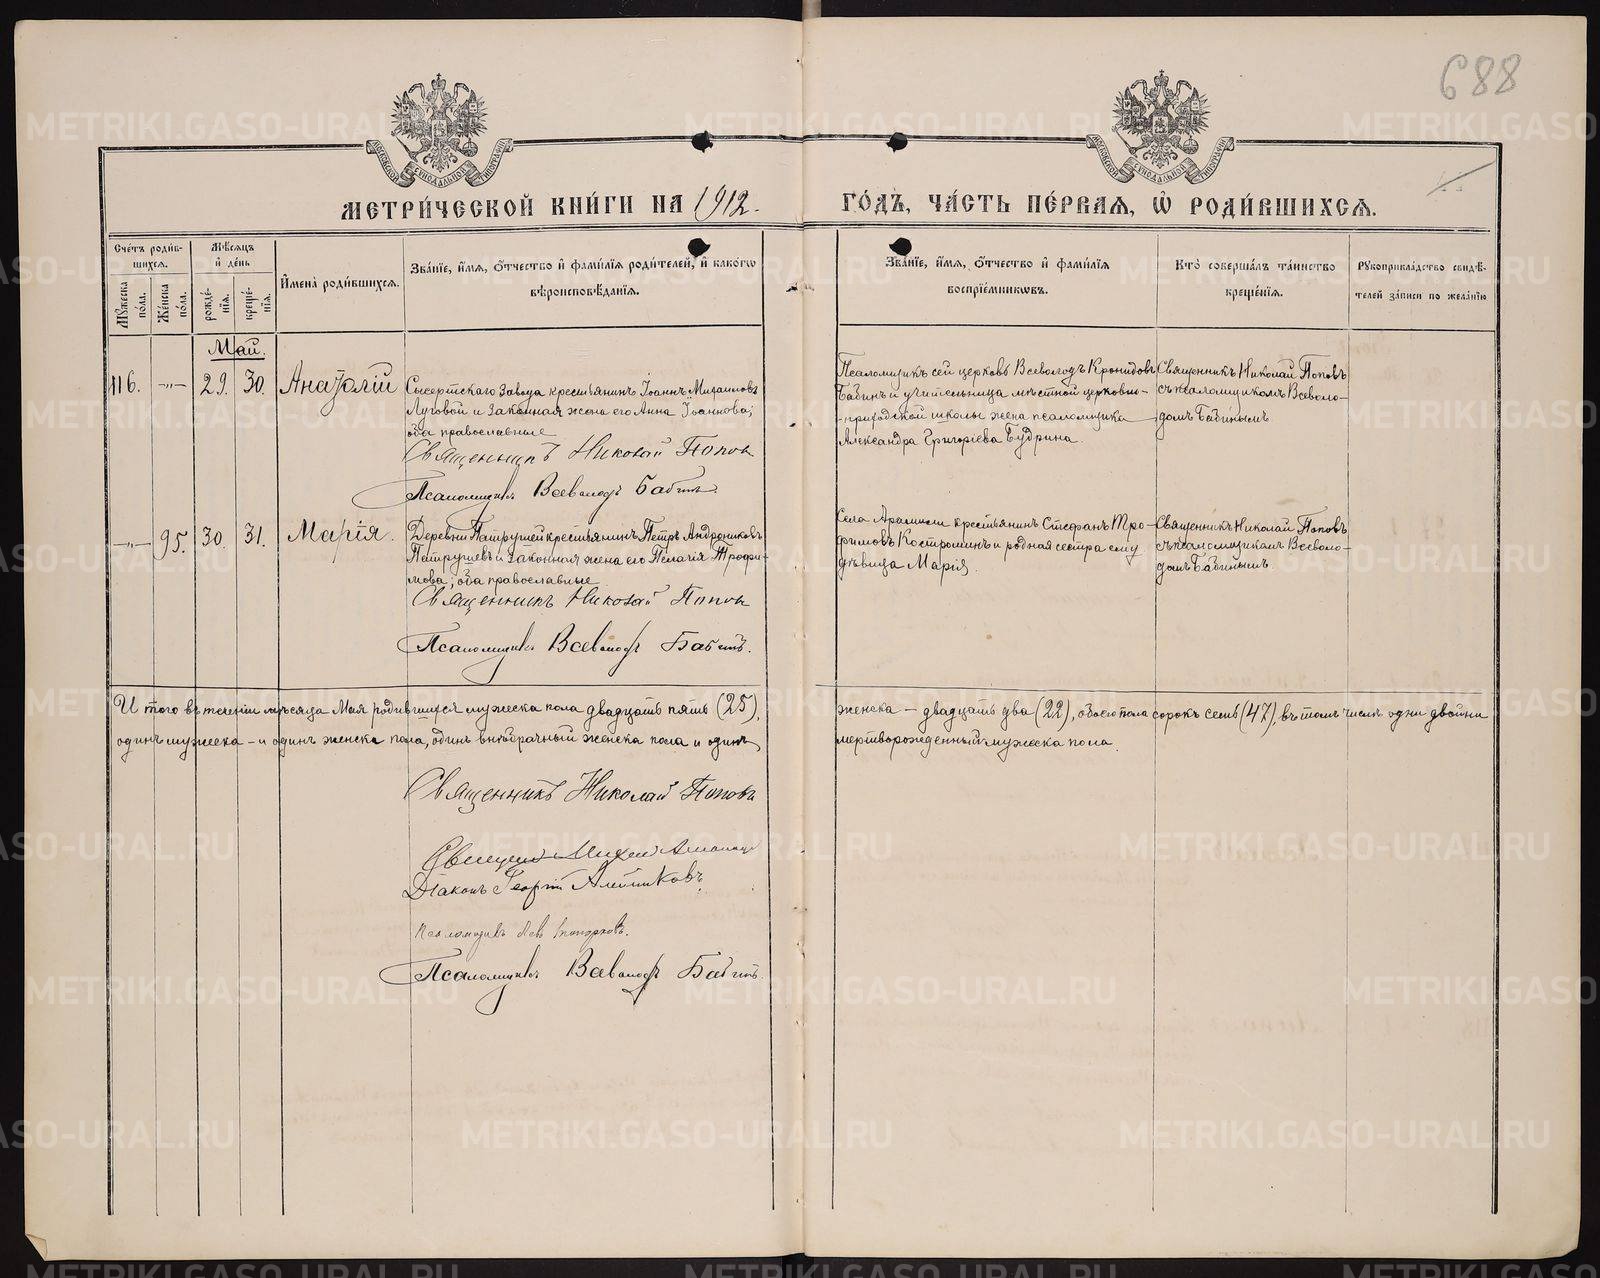 688
МОСКОВСКОЙ СѴНОДАЛЬНОЙ ТИПОГРАФІИ
МОСКОВСКОЙ СѴНОДАЛЬНОЙ ТИПОГРАФІИ
МЕТРИ́ЧЕСКОЙ КНИ́ГИ НА 1912. ГО́ДЪ, ЧА́СТЬ ПЕ́РВАЯ, Ѡ РОДИ́ВШИХСЯ.
Сче́тъ роди́в-
шихся.
Му́жеска по́ла.
Же́нска по́ла.
Мѣ́сяцъ
и де́нь
рожде́-
нїя.
креще́-
нїя.
И҆мена̀ роди́вшихся.
Зва́нїе, и҆́мя, ѻ҆́тчество и҆ фами́лїя роди́телей, и҆ како́гѡ
вѣроисповѣ́данїя.
Зва́нїе, и҆́мя, ѻ҆́тчество и҆ фами́лїя
воспрїе́мниковъ.
Кто̀ соверша́лъ та́инство
креще́нїя.
Рꙋкоприкла́дство свидѣ́-
телей за́писи по жела́нїю
Май.
116. —„— 29. 30. Анатолій
Сысертскаго завода крестьянинъ Іоаннъ Михаиловъ
Луговой и законная жена его Анна Іоаннова;
оба православные
Священникъ Николай Попов
Псаломщикъ Всеволодъ Бабинъ.
Псаломщикъ сей церкви Всеволодъ Кронидовъ
Бабинъ и учительница мѣстной церковно-
-приходской школы жена псаломщика
Александра Григорієва Будрина.
Священникъ Николай Поповъ
съ псаломщикомъ Всеволо-
домъ Бабинымъ
—„— 95. 30. 31. Марія.
Деревни Патрушей крестьянинъ Петръ Андрониковъ
Патрушевъ и законная жена его Пелагія Трофи-
мова; оба православные
Священникъ Николай Попов
Псаломщикъ Всеволодъ Бабинъ.
Села Арамили крестьянинъ Стефанъ Тро-
фимовъ Костроминъ и родная сестра ему
дѣвица Марія.
Священникъ Николай Поповъ
съ псаломщикомъ Всеволо-
домъ Бабинымъ.
И того въ теченіи мѣсяца Мая родившихся мужеска пола двадцать пять (25),
женска — двадцать два (22), обоего пола сорокъ семь (47), въ томъ числѣ одни двойни
одинъ мужеска — и одинъ женска пола, одинъ внѣбрачный женска пола и одинъ
мертворожденный мужеска пола.
Священникъ Николай Поповъ
Діаконъ Георгій Алейниковъ.
Псаломщикъ Левъ
Псаломщикъ Всеволодъ Бабинъ.
METRIKI.GASO-URAL.RU